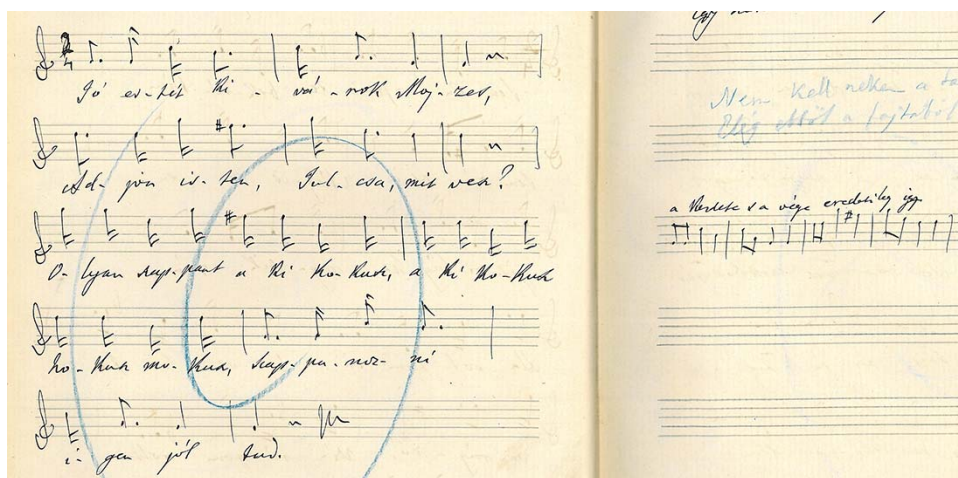 Jó es-tét Ki - vá - nok Moj-zes,
Ad- jon is- ten, Jul- csa, mit vesz?
O- lyan szap-pant a ki ko-kusz, a ki ko-kusz
ko-kusz mo-kusz, szap-pa-noz- ni
i- gen jól tud.
Nem kell nekem a
Elég ebből a fajtából
a kezdete s a vége eredetileg így